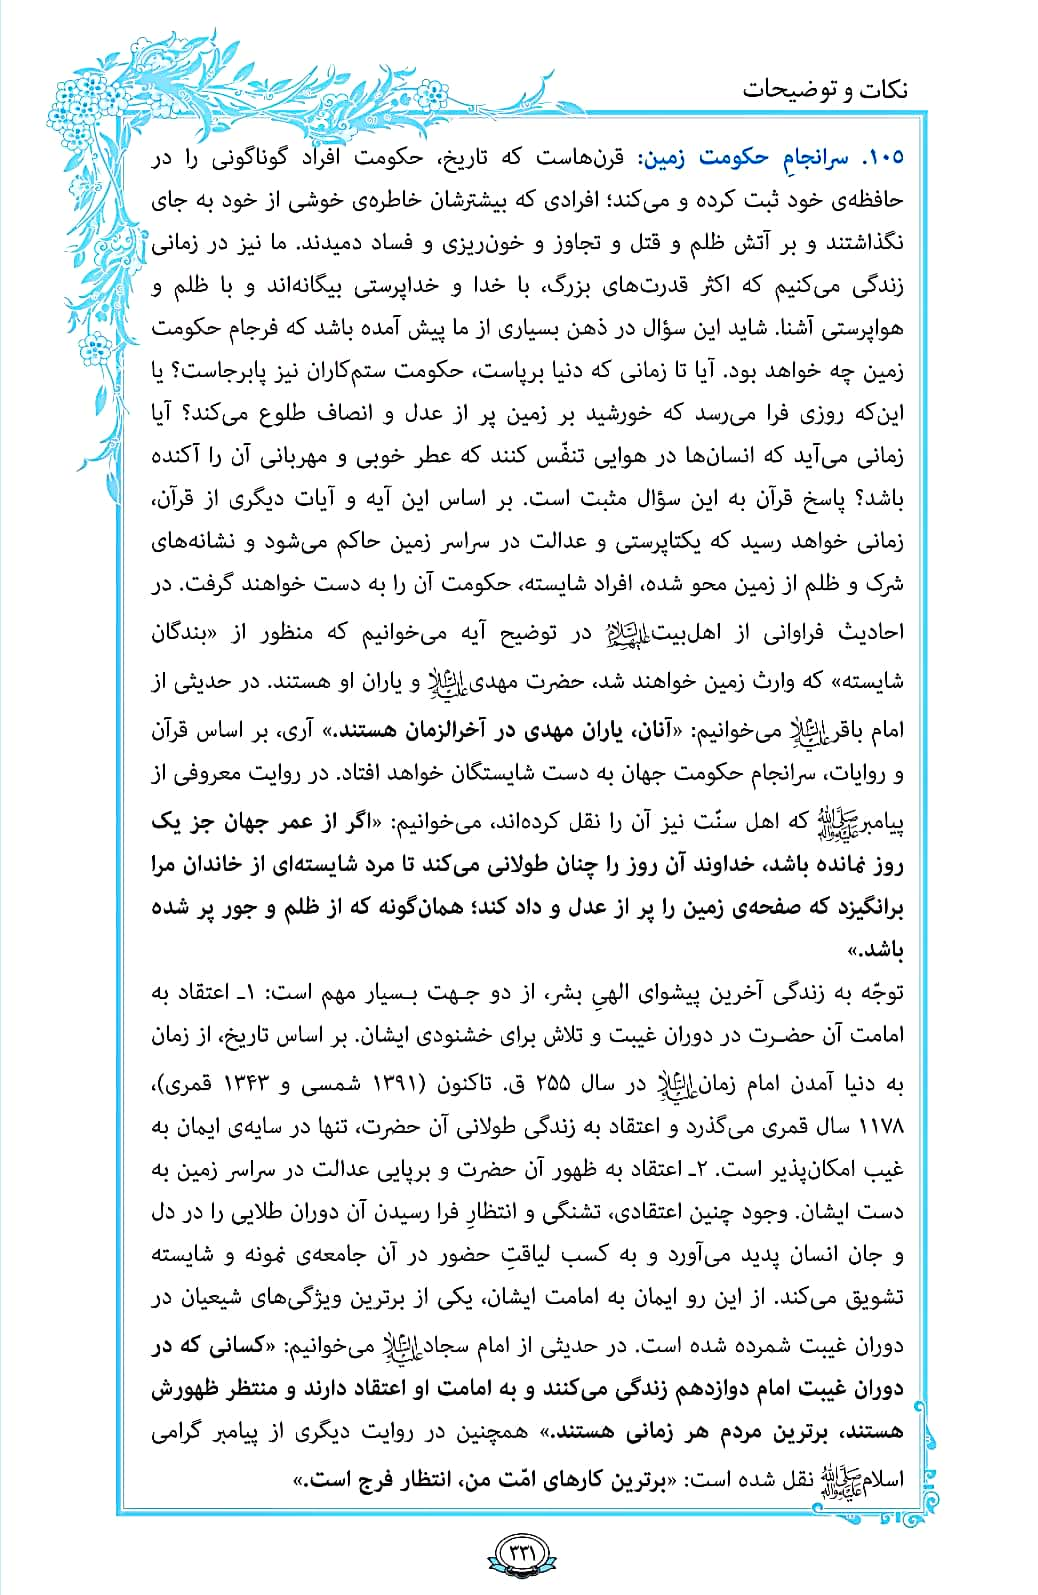 نکات و توضیحات
۱۰۵. سرانجامِ حکومت زمین: قرن‌هاست که تاریخ، حکومت افراد گوناگونی را در
حافظه‌ی خود ثبت کرده و می‌کند؛ افرادی که بیشترشان خاطره‌ی خوشی از خود به جای
نگذاشتند و بر آتش ظلم و قتل و تجاوز و خون‌ریزی و فساد دمیدند. ما نیز در زمانی
زندگی می‌کنیم که اکثر قدرت‌های بزرگ، با خدا و خداپرستی بیگانه‌اند و با ظلم و
هواپرستی آشنا. شاید این سؤال در ذهن بسیاری از ما پیش آمده باشد که فرجام حکومت
زمین چه خواهد بود. آیا تا زمانی که دنیا برپاست، حکومت ستم‌کاران نیز پابرجاست؟ یا
این‌که روزی فرا می‌رسد که خورشید بر زمین پر از عدل و انصاف طلوع می‌کند؟ آیا
زمانی می‌آید که انسان‌ها در هوایی تنفّس کنند که عطر خوبی و مهربانی آن را آکنده
باشد؟ پاسخ قرآن به این سؤال مثبت است. بر اساس این آیه و آیات دیگری از قرآن،
زمانی خواهد رسید که یکتاپرستی و عدالت در سراسر زمین حاکم می‌شود و نشانه‌های
شرک و ظلم از زمین محو شده، افراد شایسته، حکومت آن را به دست خواهند گرفت. در
احادیث فراوانی از اهل‌بیت علیهم‌السلام در توضیح آیه می‌خوانیم که منظور از «بندگان
شایسته» که وارث زمین خواهند شد، حضرت مهدی علیه‌السلام و یاران او هستند. در حدیثی از
امام باقر علیه‌السلام می‌خوانیم: «آنان، یاران مهدی در آخرالزمان هستند.» آری، بر اساس قرآن
و روایات، سرانجام حکومت جهان به دست شایستگان خواهد افتاد. در روایت معروفی از
پیامبر صلی‌الله‌علیه‌وآله که اهل سنّت نیز آن را نقل کرده‌اند، می‌خوانیم: «اگر از عمر جهان جز یک
روز نمانده باشد، خداوند آن روز را چنان طولانی می‌کند تا مرد شایسته‌ای از خاندان مرا
برانگیزد که صفحه‌ی زمین را پر از عدل و داد کند؛ همان‌گونه که از ظلم و جور پر شده
باشد.»
توجّه به زندگی آخرین پیشوای الهیِ بشر، از دو جـهت بـسیار مهم است: ۱ـ اعتقاد به
امامت آن حضـرت در دوران غیبت و تلاش برای خشنودی ایشان. بر اساس تاریخ، از زمان
به دنیا آمدن امام زمان علیه‌السلام در سال ۲۵۵ ق. تاکنون (۱۳۹۱ شمسی و ۱۳۴۳ قمری)،
۱۱۷۸ سال قمری می‌گذرد و اعتقاد به زندگی طولانی آن حضرت، تنها در سایه‌ی ایمان به
غیب امکان‌پذیر است. ۲ـ اعتقاد به ظهور آن حضرت و برپایی عدالت در سراسر زمین به
دست ایشان. وجود چنین اعتقادی، تشنگی و انتظارِ فرا رسیدن آن دوران طلایی را در دل
و جان انسان پدید می‌آورد و به کسب لیاقتِ حضور در آن جامعه‌ی نمونه و شایسته
تشویق می‌کند. از این رو ایمان به امامت ایشان، یکی از برترین ویژگی‌های شیعیان در
دوران غیبت شمرده شده است. در حدیثی از امام سجاد علیه‌السلام می‌خوانیم: «کسانی که در
دوران غیبت امام دوازدهم زندگی می‌کنند و به امامت او اعتقاد دارند و منتظر ظهورش
هستند، برترین مردم هر زمانی هستند.» همچنین در روایت دیگری از پیامبر گرامی
اسلام صلی‌الله‌علیه‌وآله نقل شده است: «برترین کارهای امّت من، انتظار فرج است.»
۳۳۱